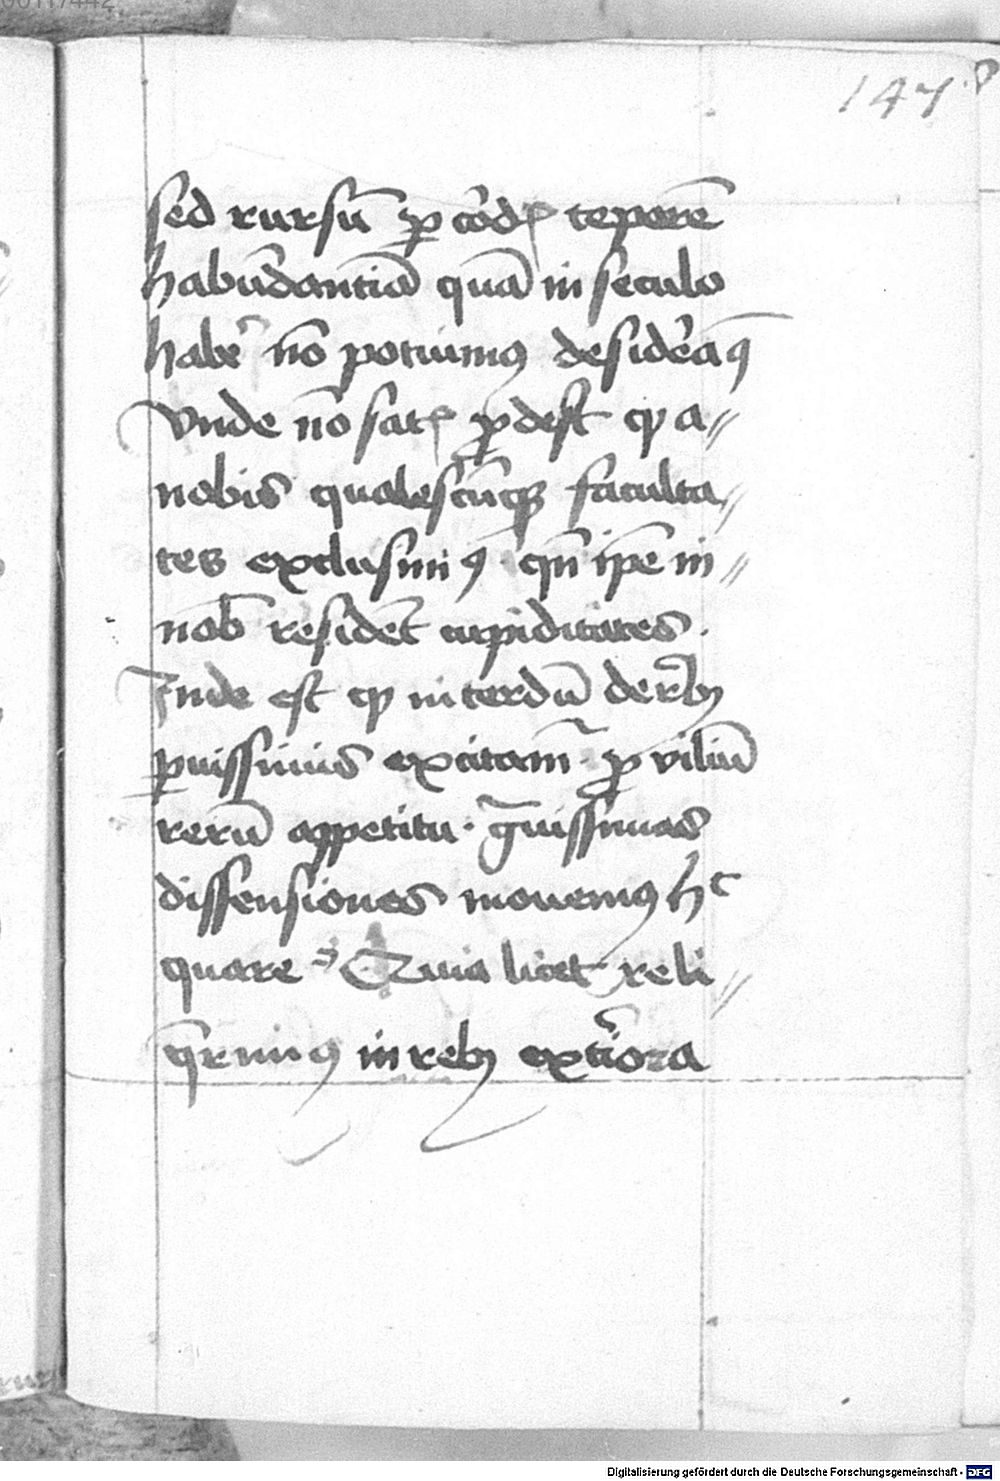 147
sed rursū ꝑ cōdꝭ teporē
habūdantiā quā in seculo
habē nō potuimꝰ desideraꝰ
Vnde nō satꝭ ꝓdest ꝙ a〃
nobis qualescūqꝫ faculta〃
tes exclusimꝰ · qn̄ ip̄e in〃
nob̄ residēt cupiditates ·
Inde est ꝙ interdū de reb9
ꝑuissimis excitam̄ · ꝓ viliū
rerū appetitu · g̃uissimas
dissensiones mouemꝰ hͨ
quare Quia licet reli〃
q̄rimꝰ in reb9 extiora
Digitalisierung gefördert durch die Deutsche Forschungsgemeinschaft - DFG